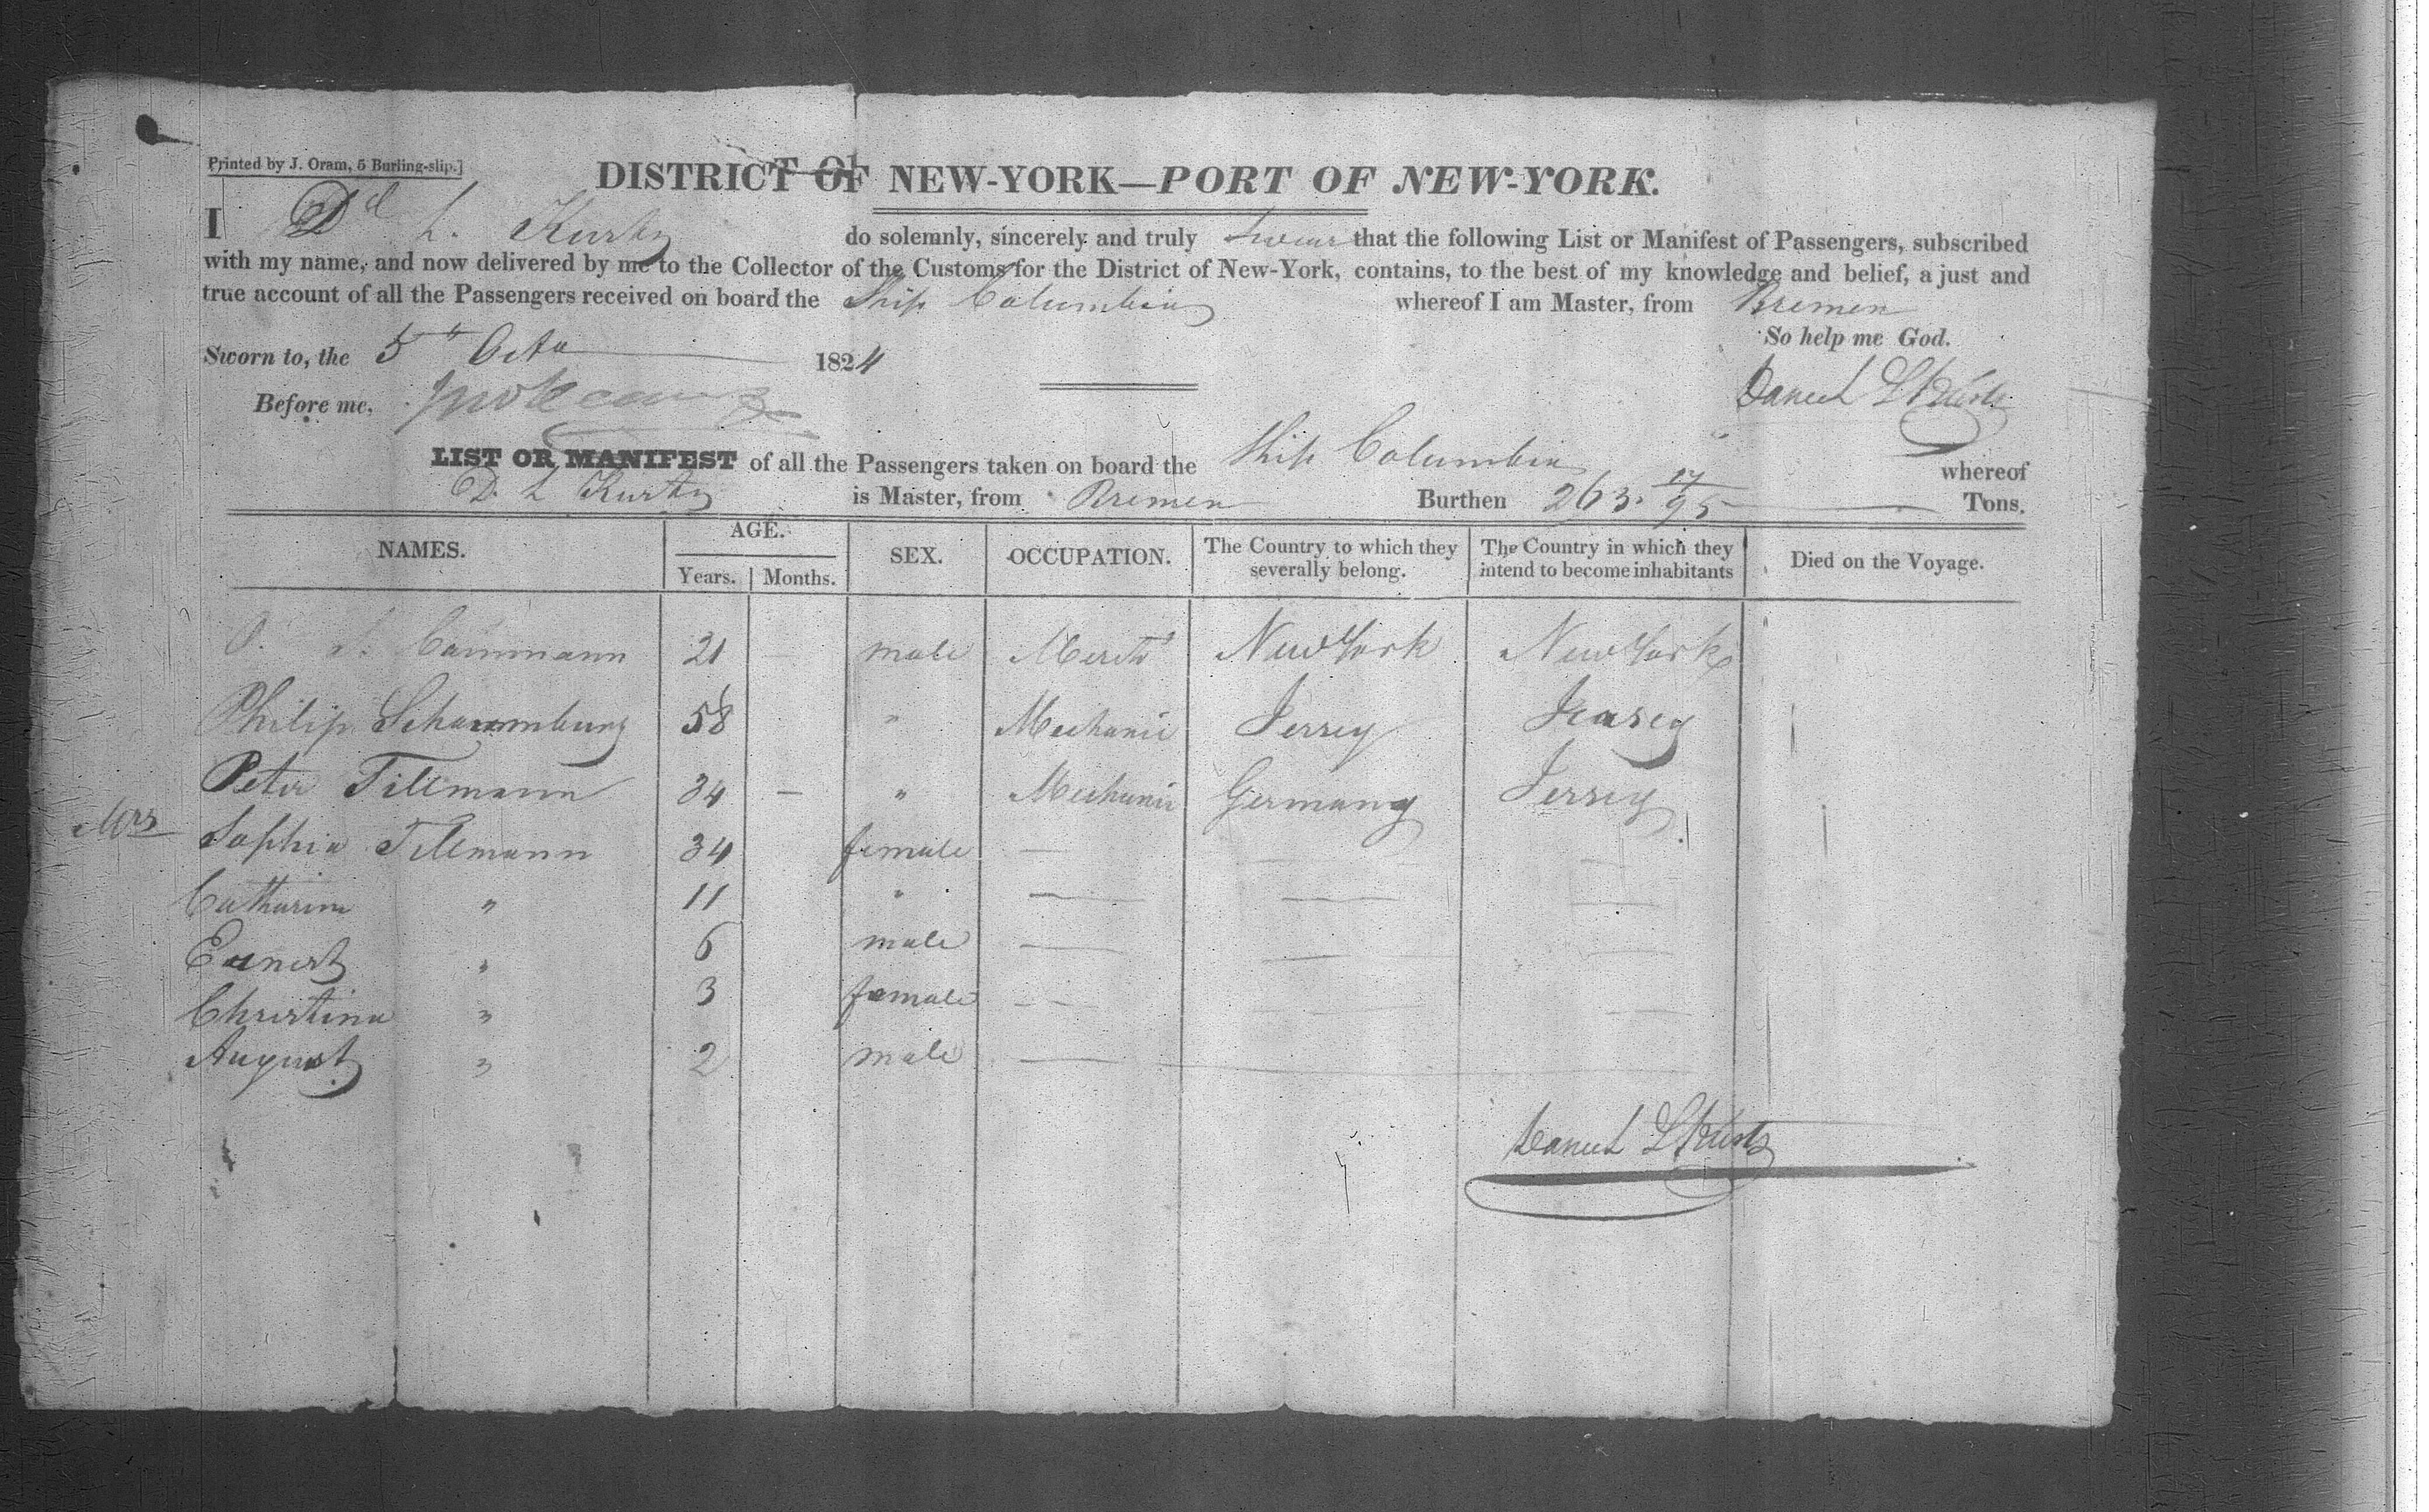 Printed by J. Oram, 5 Burling-slip.]
DISTRICT OF NEW-YORK—PORT OF NEW-YORK.
I Dl L. Kurtz do solemnly, sincerely and truly swear that the following List or Manifest of Passengers, subscribed
with my name, and now delivered by me to the Collector of the Customs for the District of New-York, contains, to the best of my knowledge and belief, a just and
true account of all the Passengers received on board the Ship Columbia whereof I am Master, from Bremen
So help me God.
Sworn to, the 5th Octo 1824
Before me,
Daniel L Kurtz
LIST OR MANIFEST of all the Passengers taken on board the Ship Columbia whereof
D. L Kurtz is Master, from Bremen Burthen 263. 17/95 Tons.
NAMES. AGE. Years. Months. SEX. OCCUPATION. The Country to which they severally belong. The Country in which they intend to become inhabitants Died on the Voyage.
O. Cammann 21 — male Mercht New York New York
Philip Schaumburg 58 " Mechanic Jersey Jersey
Peter Tillmann 34 — " Mechanic Germany Jersey
Mrs Sophia Tillmann 34 female — — —
Catharine " 11 " — — —
Ernest " 6 male — — —
Christina " 3 female — — —
August " 2 male —
Daniel L Kurtz